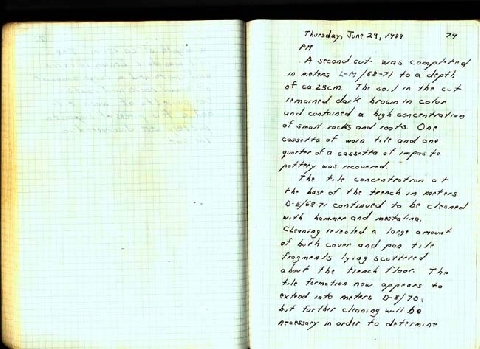 Thursday, June 29, 1989 74
PM
A second cut was completed
in meters L-M/68-71 to a depth
of ca 28cm. The soil in the cut
remained dark brown in color
and contained a high concentration
of small rocks and roots. One
cassetta of worn tile and one
quarter of a cassetta of impasto
pottery was recovered.
The tile concentration at
the base of the trench in meters
continued to be cleaned
with hammer and mestolino.
Cleaning revealed a large amount
of both cover and pan tile
fragments lying scattered
about the trench floor. The
tile formation now appears to
extend into meters
but further cleaning will be
necessary in order to determine